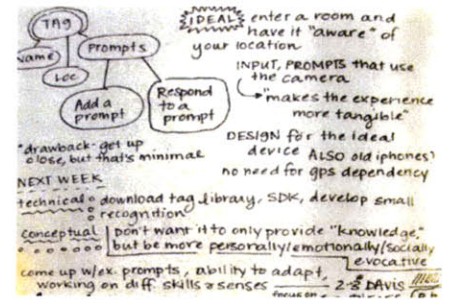 TAG
Name
Loc
Prompts
Add a
prompt
Respond
to a
prompt
"drawback - get up
close, but that's minimal
IDEAL enter a room and
have it "aware" of
your location
INPUT, PROMPTS that use
the camera
"makes the experience
more tangible"
DESIGN for the ideal
device ALSO old iphones?
no need for gps dependency
NEXT WEEK
technical download tag library, SDK, develop small
recognition
conceptual don't want it to only provide "knowledge,"
but be more personally/emotionally/socially
evocative
come up w/ex. prompts, ability to adapt,
working on diff. skills & senses
DAvis
focus on